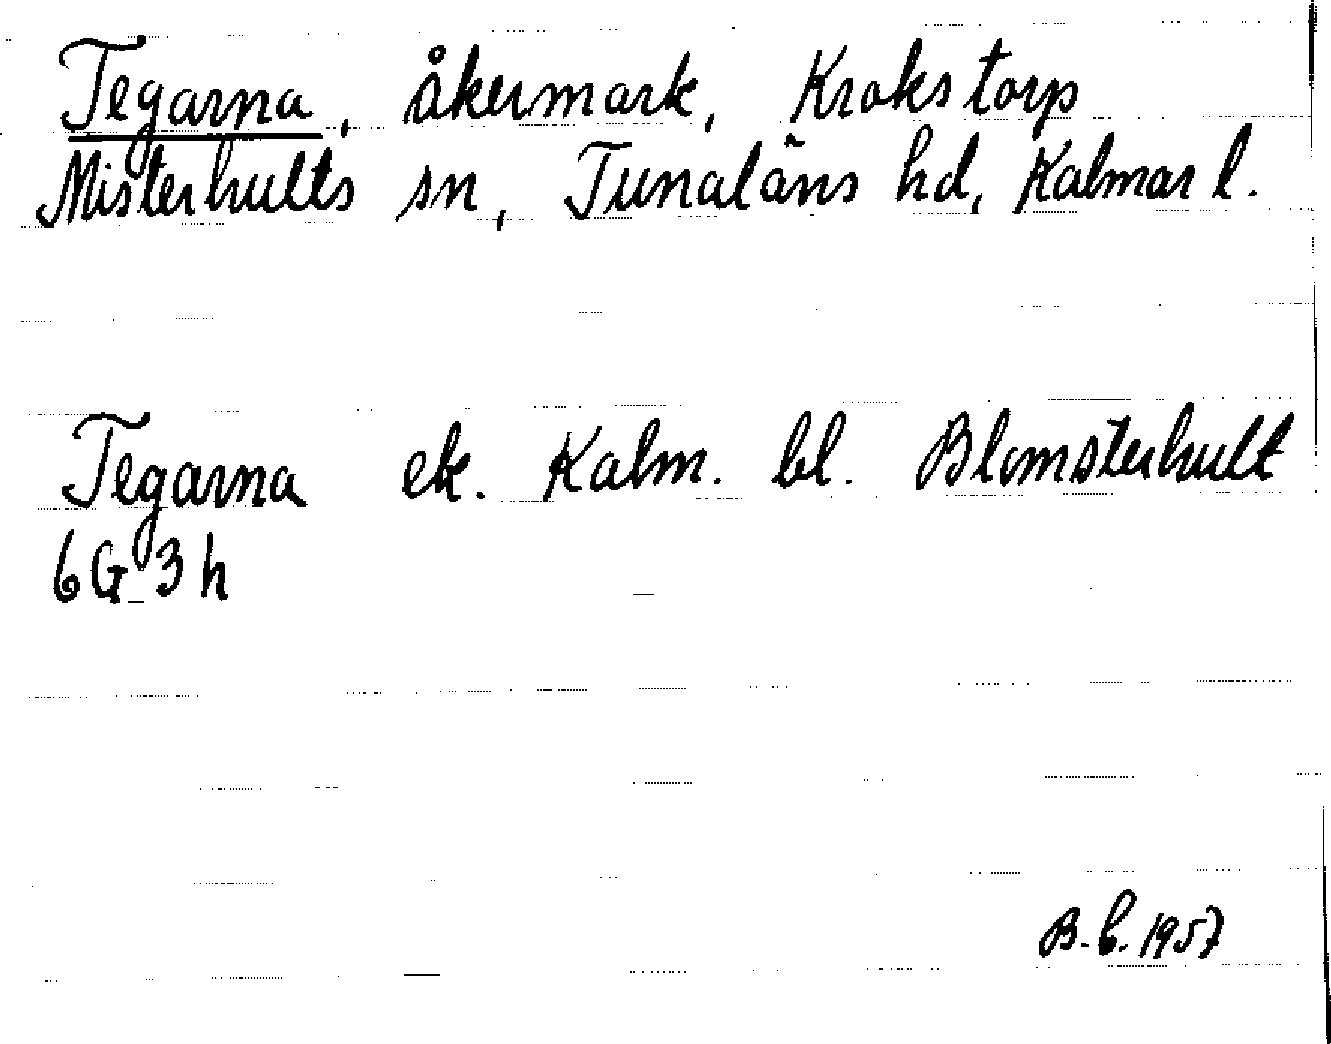 Tegarna, åkermark, Krokstorp
Misterhults sn, Tunaläns hd, Kalmar l.
Tegarna ek. Kalm. bl. Blomsterhult
6G 3h
B.b. 1957